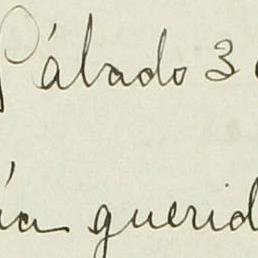 Sábado 3
ía querid